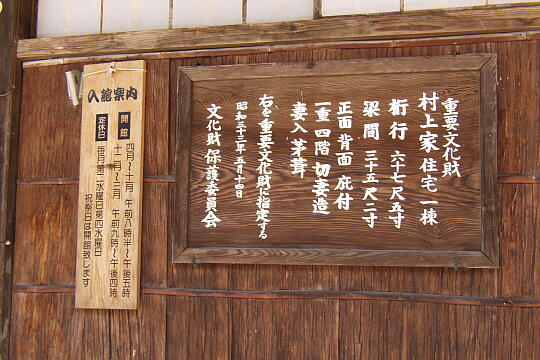 重要文化財
村上家住宅一棟
桁行 六十七尺五寸
梁間 三十五尺二寸
正面背面庇付
一重四階切妻造
妻入茅葺
右を重要文化財に指定する
昭和三十三年五月十四日
文化財保護委員会
入館案内
開館 四月～十月 午前八時半～午後五時
十一月～三月 午前九時～午後四時
定休日 毎月第二水曜日第四水曜日
祝祭日は開館致します